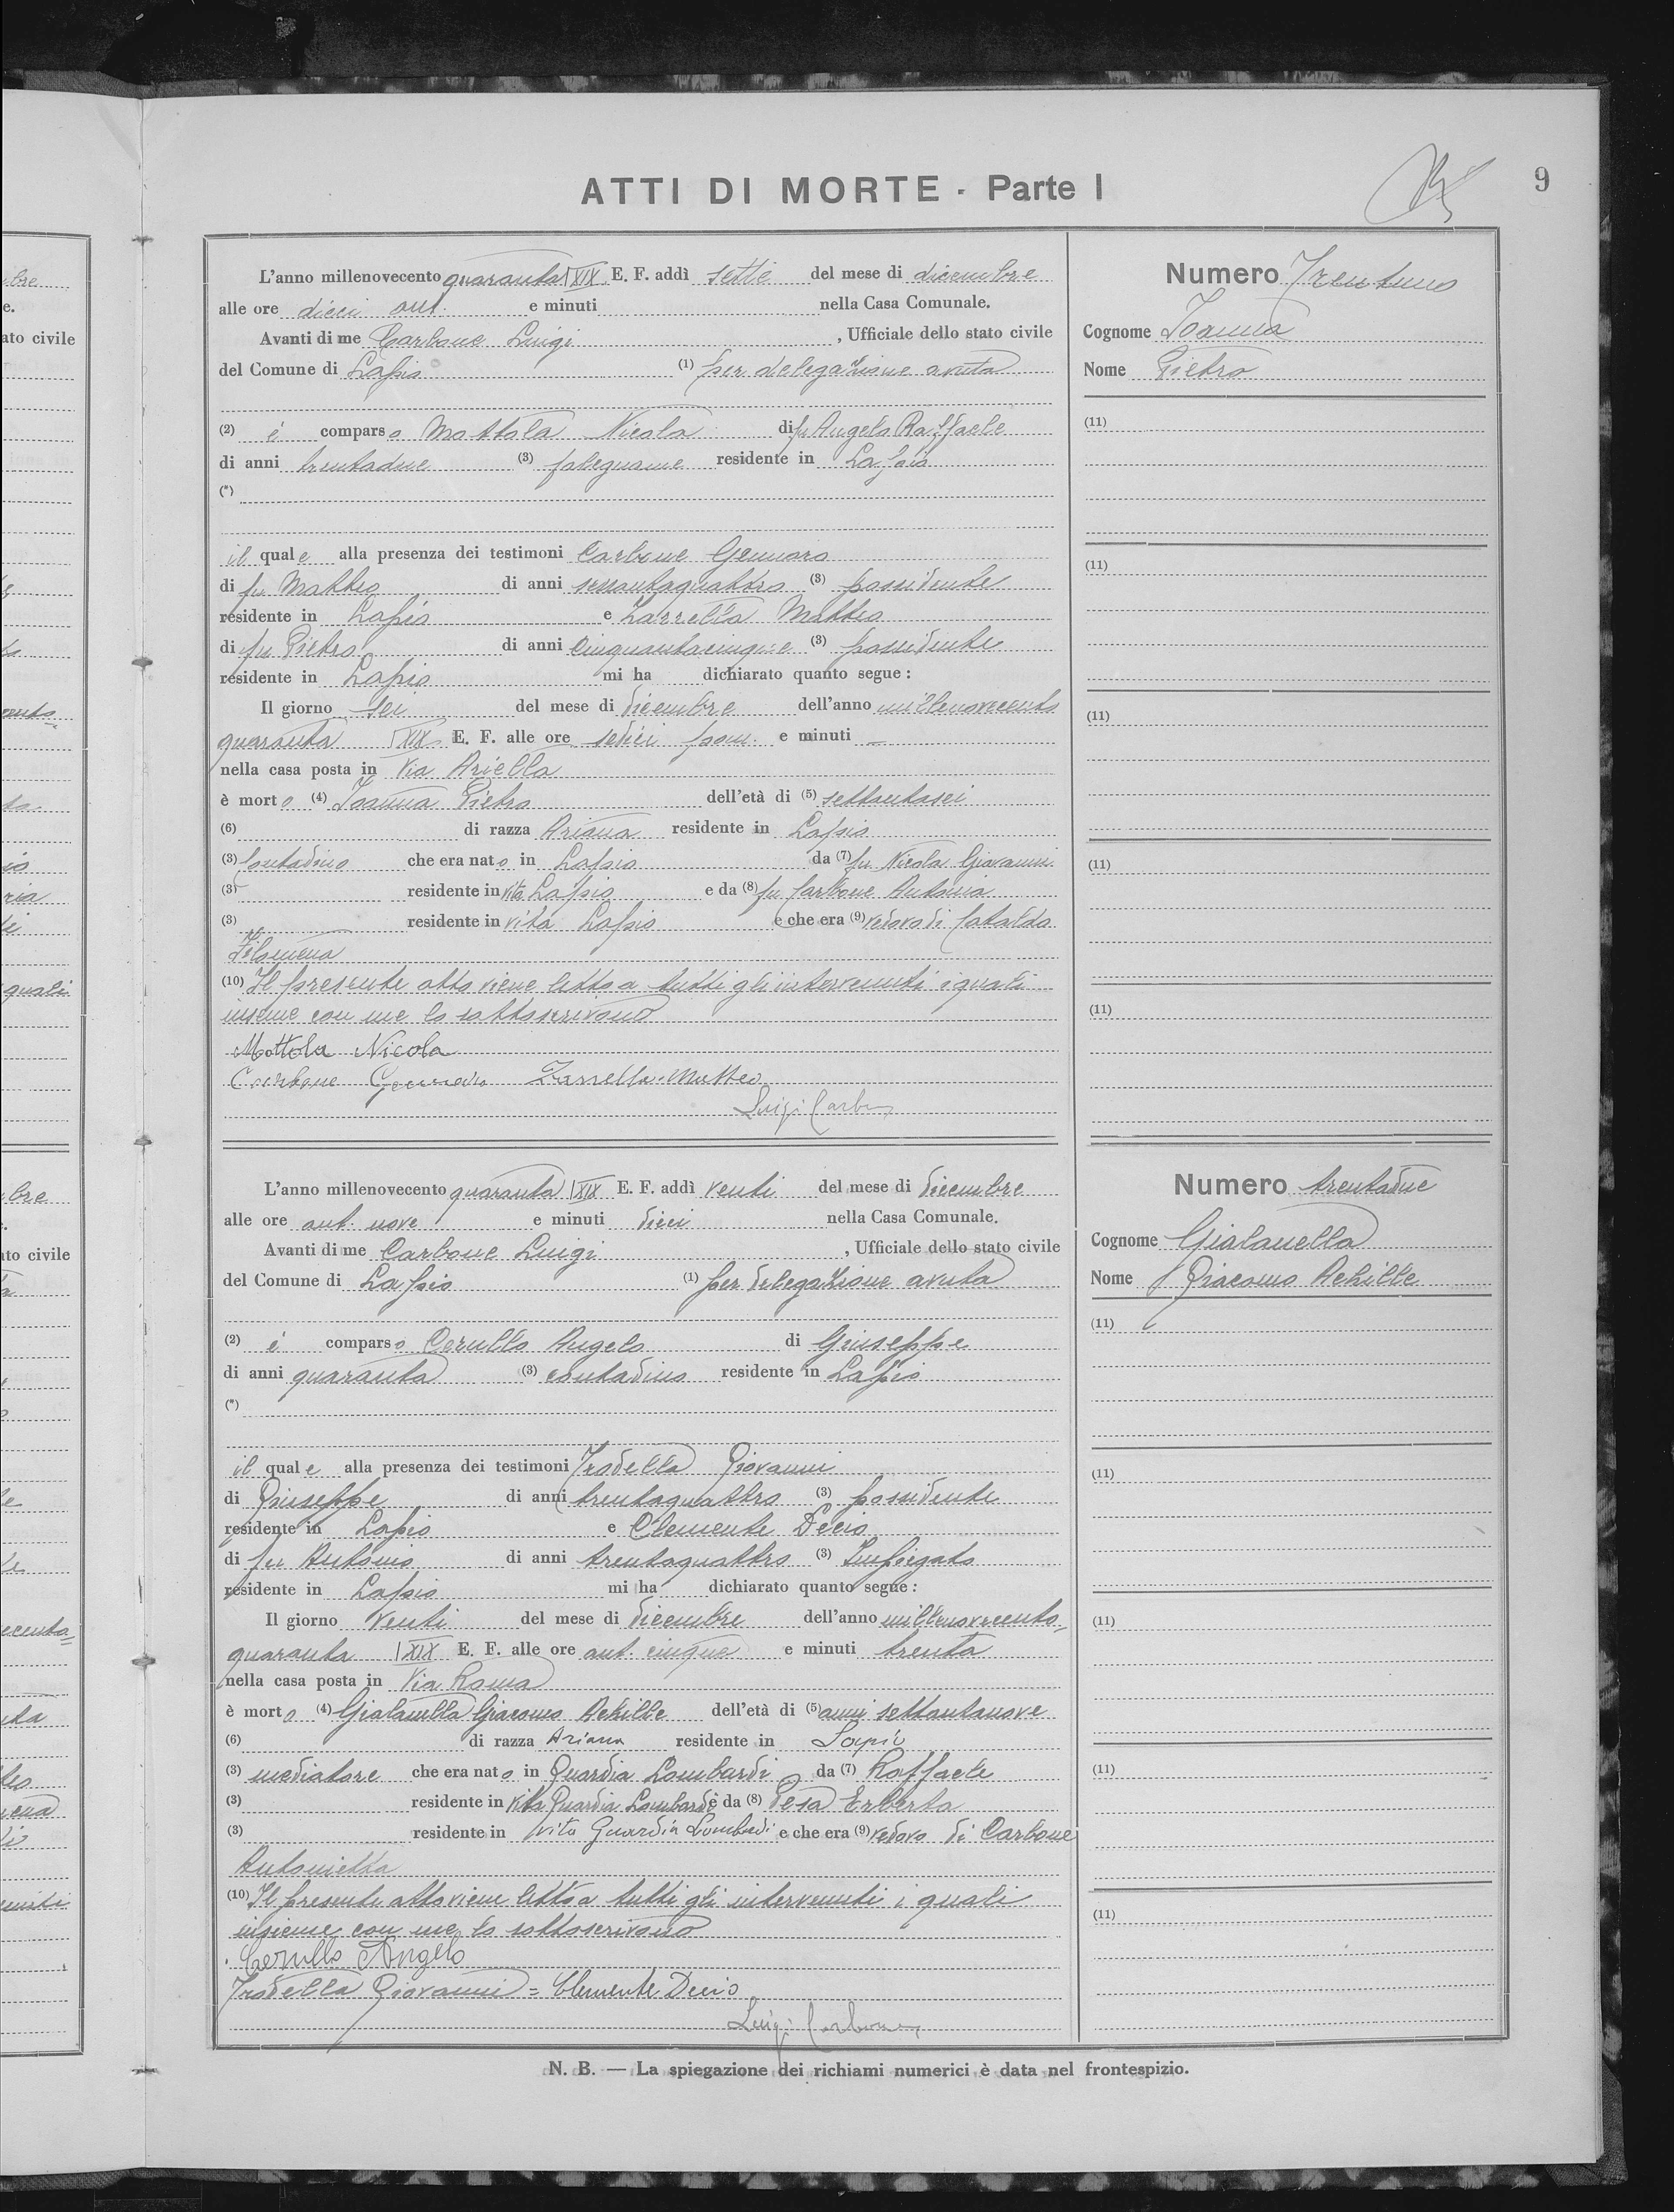 ATTI DI MORTE - Parte I
9
L'anno millenovecento quaranta XIX E. F. addì sette del mese di dicembre
alle ore dieci ant. e minuti nella Casa Comunale.
Avanti di me Carbone Luigi , Ufficiale dello stato civile
del Comune di Lapio (1) per delegazione avuta
(2) è comparso Mottola Nicola di fu Angelo Raffaele
di anni trentadue (3) falegname residente in Lapio
(*)
il quale alla presenza dei testimoni Carbone Gennaro
di fu Matteo di anni sessantaquattro (3) possidente
residente in Lapio e Zarrella Matteo
di fu Pietro di anni cinquantacinque (3) possidente
residente in Lapio mi ha dichiarato quanto segue :
Il giorno sei del mese di dicembre dell'anno millenovecento
quaranta XIX E. F. alle ore sedici pom. e minuti —
nella casa posta in Via Ariella
è morto (4) Ioanna Pietro dell'età di (5) settantasei
(6) di razza Ariana residente in Lapio
(3) contadino che era nato in Lapio da (7) fu Nicola Giovanni
(3) residente in vita Lapio e da (8) fu Carbone Antonia
(3) residente in vita Lapio e che era (9) vedovo di Cataldo
Filomena
(10) Il presente atto viene letto a tutti gli intervenuti i quali
insieme con me lo sottoscrivono
Mottola Nicola
Carbone Gennaro Zarrella Matteo
Luigi Carbone
Numero Trentuno
Cognome Ioanna
Nome Pietro
(11)
(11)
(11)
(11)
(11)
L'anno millenovecento quaranta XIX E. F. addì venti del mese di dicembre
alle ore ant. nove e minuti dieci nella Casa Comunale.
Avanti di me Carbone Luigi , Ufficiale dello stato civile
del Comune di Lapio (1) per delegazione avuta
(2) è comparso Cerullo Angelo di Giuseppe
di anni quaranta (3) contadino residente in Lapio
(*)
il quale alla presenza dei testimoni Trodella Giovanni
di Giuseppe di anni trentaquattro (3) possidente
residente in Lapio e Clemente Decio
di fu Antonio di anni trentaquattro (3) Impiegato
residente in Lapio mi ha dichiarato quanto segue :
Il giorno venti del mese di dicembre dell'anno millenovecento
quaranta XIX E. F. alle ore ant. cinque e minuti trenta
nella casa posta in Via Roma
è morto (4) Gialanella Giacomo Achille dell'età di (5) anni settantanove
(6) di razza Ariana residente in Lapio
(3) mediatore che era nato in Guardia Lombardi da (7) Raffaele
(3) residente in vita Guardia Lombardi e da (8) Pesa Erberta
(3) residente in vita Guardia Lombardi e che era (9) vedovo di Carbone
Antonietta
(10) Il presente atto viene letto a tutti gli intervenuti i quali
insieme con me lo sottoscrivono
Cerullo Angelo
Trodella Giovanni = Clemente Decio
Luigi Carbone
Numero trentadue
Cognome Gialanella
Nome Giacomo Achille
(11)
(11)
(11)
(11)
(11)
N. B. — La spiegazione dei richiami numerici è data nel frontespizio.